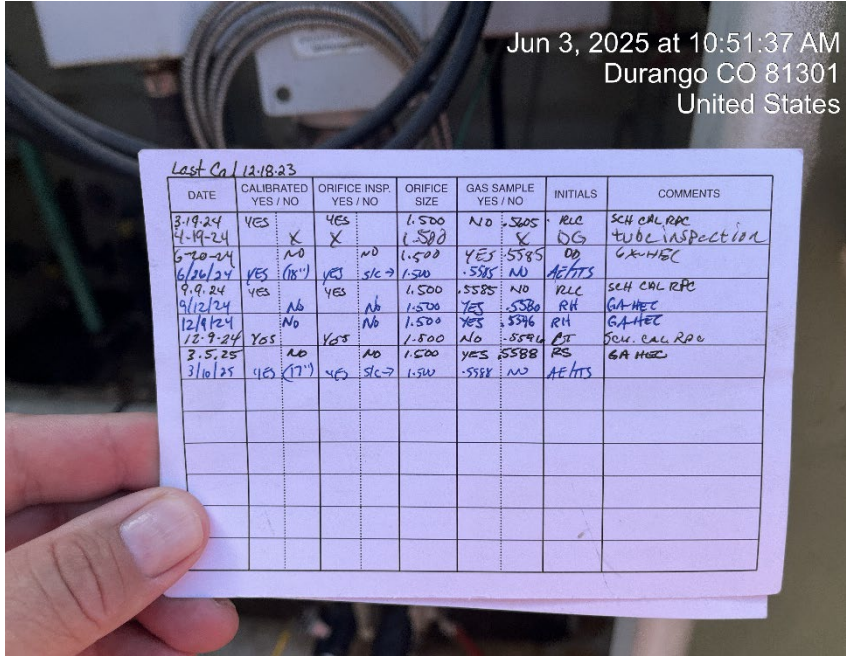 Jun 3, 2025 at 10:51:37 AM
Durango CO 81301
United States
Last Cal 12.18.23
DATE CALIBRATED YES / NO ORIFICE INSP. YES / NO ORIFICE SIZE GAS SAMPLE YES / NO INITIALS COMMENTS
3.19.24 YES YES 1.500 NO .5605 RLC SCH CAL RPC
4-19-24 X X 1.500 X DG tube inspection
6-20-24 NO NO 1.500 YES .5585 DD
6/26/24 YES (18") YES S/C→ 1.500 .5585 NO AE/HTS
9.9.24 YES YES 1.500 .5585 NO RLC SCH CAL RPC
9/12/24 No No 1.500 YES .5580 RH GA-HEC
12/9/24 No No 1.500 YES .5596 RH GA-HEC
12-9-24 YES YES 1.500 No .5596 SCH. CAL RPC
3.5.25 NO NO 1.500 YES .5588 RS GA HEC
3/10/25 YES (17") YES S/C→ 1.500 .5588 NO AE/HTS